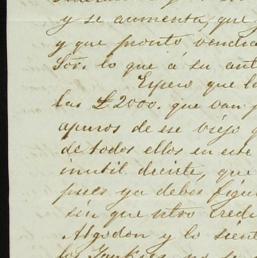 y se aumenta, que
y que pronto vendra
Sor. lo que a su ant
Espero que la
las £2000. que van p
apuros de ese viejo q
de todos ellos en este
inutil decirte, que
pues ya debes figur
sin que otro credi
Algodon y lo sient
los Yankees no se